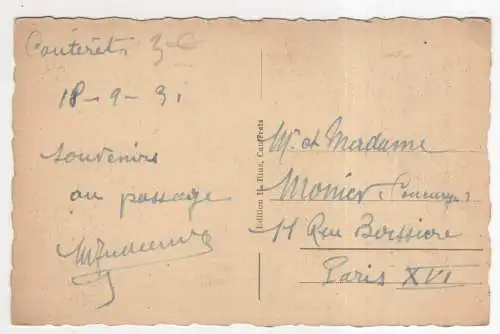 Cauterets
18-9-31
souvenirs
au passage
Edition H. Blue, Cauterets
Mr et Madame
Monier (Concierge)
11 Rue Boissiere
Paris XVI